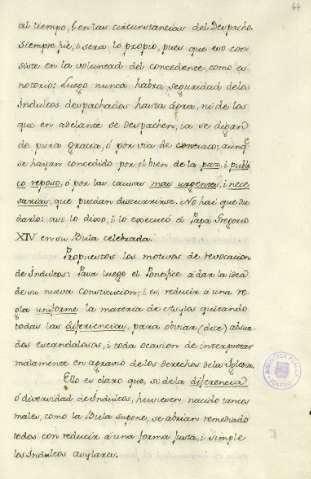 44
al tiempo, i en las circunstancias del Despacho
siempre fue, i será lo propio, pues que esso con-
siste en la voluntad del concedente, como es
notorio: luego nunca habrá seguridad de los
Indultos despachados hasta agora, ni de los
que en adelante se despachen, ia se digan
de pura gracia, ó por via de contrato; aunq
se hayan concedido por el bien de la paz, i publi
co reposo, ó por las causas mas urgentes, i nece
sarias, que puedan discurrirse. No hai que du
darlo: assi lo dixo, i lo executó el Papa Gregorio
XIV en su Bula celebrada.
Propuestos los motivos de revocacion
de Indultos: Passa luego el Pontifice a dar la idea
de su nueva Constitucion; i es, reducir á una re
gla uniforme la materia de asylos quitando
todas las diferencias, para obviar (dice) absur
dos escandalosos, i toda ocasion de interpretar
malamente en agravio de los derechos de la Iglesia.
Ello es claro que, si de la diferencia
ó diversidad de Indultos, huviessen nacido tantos
males, como la Bula supone, se abrian remediado
todos con reducir á una forma justa, i simple
los Indultos asylares.